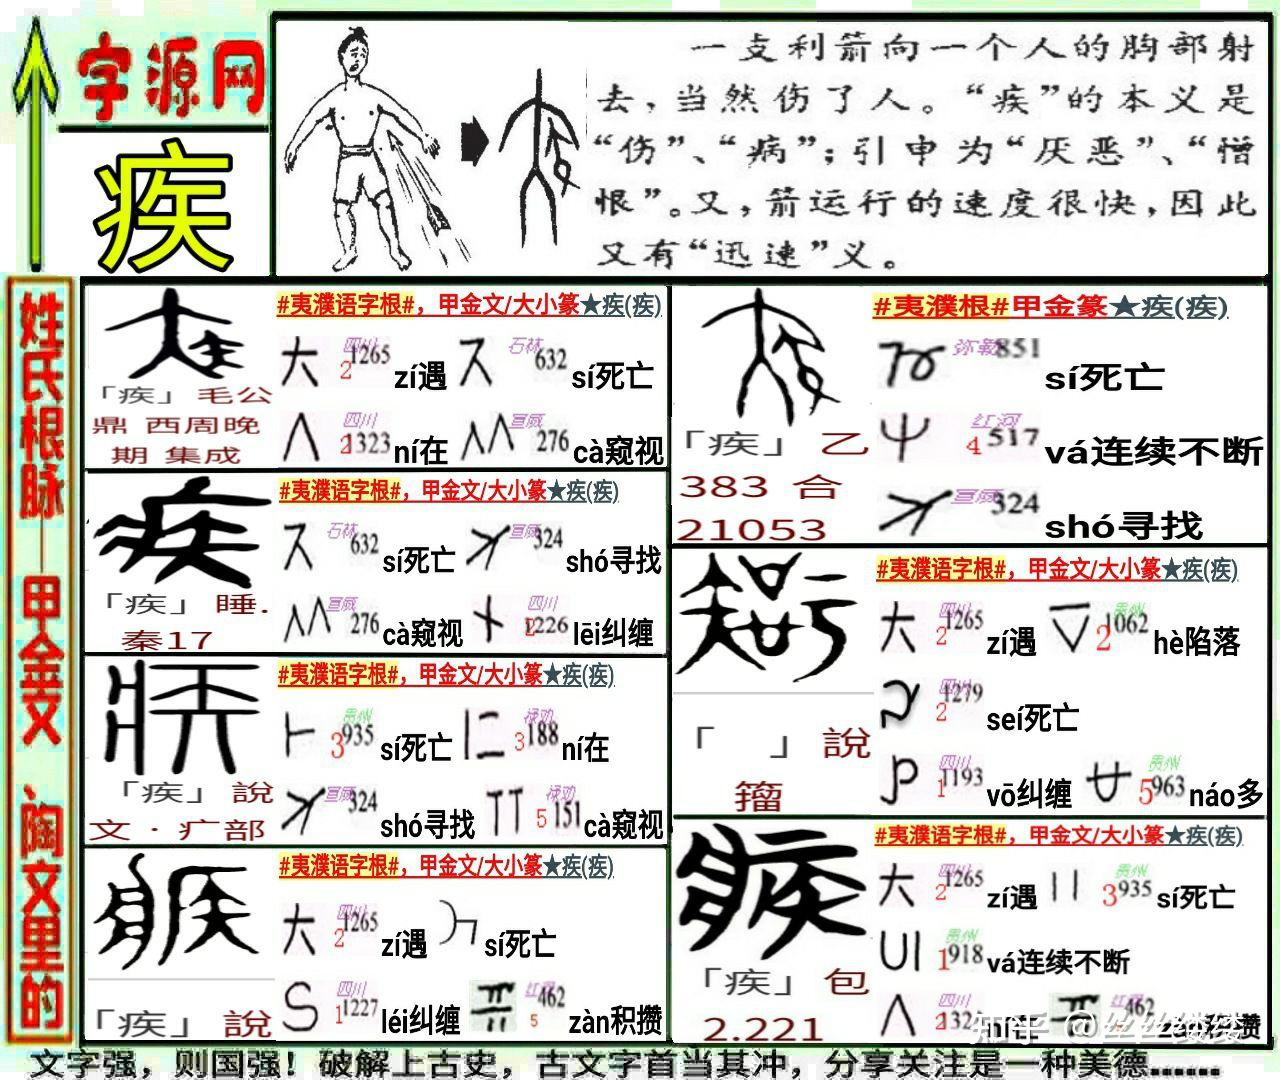 字源网
疾
一支利箭向一个人的胸部射
去，当然伤了人。“疾”的本义是
“伤”、“病”；引申为“厌恶”、“憎
恨”。又，箭运行的速度很快，因此
又有“迅速”义。
姓氏根脉——甲金文、陶文里的
#夷濮语字根#，甲金文/大小篆★疾(疾)
大 四川 2 1265 zí遇 石林 632 sí死亡
四川 2 1323 ní在 宣威 276 cà窥视
「疾」毛公
鼎 西周晚
期 集成
#夷濮语字根#，甲金文/大小篆★疾(疾)
石林 632 sí死亡 宣威 324 shó寻找
宣威 276 cà窥视 四川 2 1226 lēi纠缠
「疾」睡.
秦17
#夷濮语字根#，甲金文/大小篆★疾(疾)
贵州 3 935 sí死亡 禄劝 3 188 ní在
宣威 324 shó寻找 禄劝 5 151 cà窥视
「疾」說
文·疒部
#夷濮语字根#，甲金文/大小篆★疾(疾)
大 四川 2 1265 zí遇 sí死亡
四川 1 1227 léi纠缠 红河 462 5 zàn积攒
「疾」說
#夷濮根#甲金篆★疾(疾)
弥勒 851 sí死亡
红河 4 517 vá连续不断
宣威 324 shó寻找
「疾」乙
383 合
21053
#夷濮语字根#，甲金文/大小篆★疾(疾)
大 四川 2 1265 zí遇 贵州 2 1062 hè陷落
四川 2 1279 seí死亡
四川 1 1193 vō纠缠 贵州 5 963 náo多
「 」說
籀
#夷濮语字根#，甲金文/大小篆★疾(疾)
大 四川 2 1265 zí遇 贵州 3 935 sí死亡
贵州 1 918 vá连续不断
四川 2 132 ní在 红河 462
「疾」包
2.221
知乎 @丝丝缕缕
文字强，则国强！破解上古史，古文字首当其冲，分享关注是一种美德......